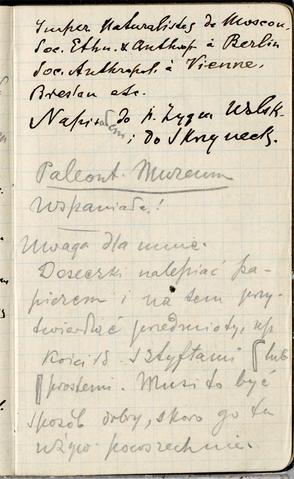 Imper. Naturalistes de Moscou.
Soc. Ethn. & Anthrop. à Berlin
Soc. Anthropol. à Vienne.
Breslau etc.
Napisałem do p. Zygm
i do Skrzyneck.
Paleont. Muzeum
Wspaniałe!
Uwaga dla mnie.
Deseczki nalepiać pa-
pierem i na tem przy-
twierdzać przedmioty, np.
kości sztyftami lub
prostemi. Musi to być
sposób dobry, skoro go tu
używ. powszechnie.